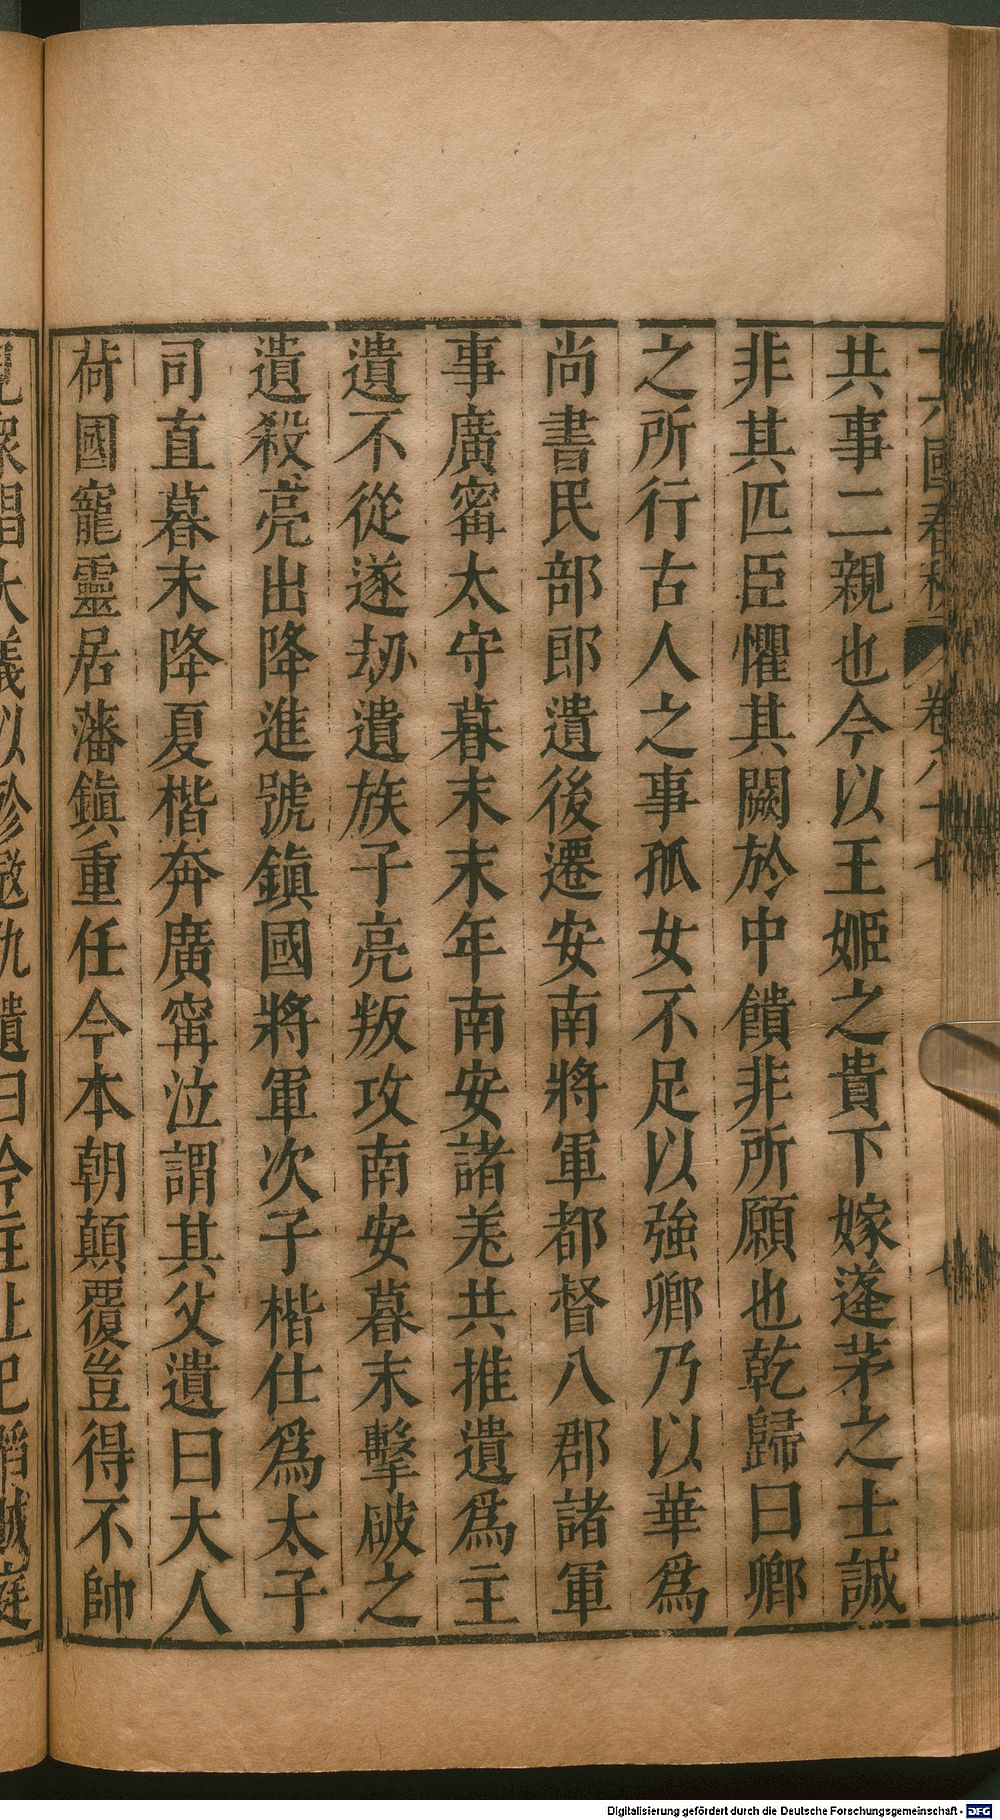 十六國春秋 卷八十七 七
共事二親也今以王姬之貴下嫁蓬茅之士誠
非其匹臣懼其闕於中饋非所願也乾歸曰卿
之所行古人之事孤女不足以強卿乃以華爲
尚書民部郎遺後遷安南將軍都督八郡諸軍
事廣甯太守暮末末年南安諸羌共推遺爲主
遺不從遂劫遺族子亮叛攻南安暮末擊破之
遺殺亮出降進號鎮國將軍次子楷仕爲太子
司直暮末降夏楷奔廣甯泣謂其父遺曰大人
荷國寵靈居藩鎮重任今本朝顛覆豈得不帥
大義以 遺曰
Digitalisierung gefördert durch die Deutsche Forschungsgemeinschaft - DFG